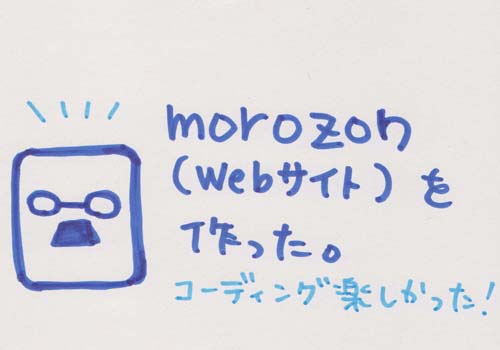 morozon
(Webサイト)を
作った。
コーディング楽しかった!